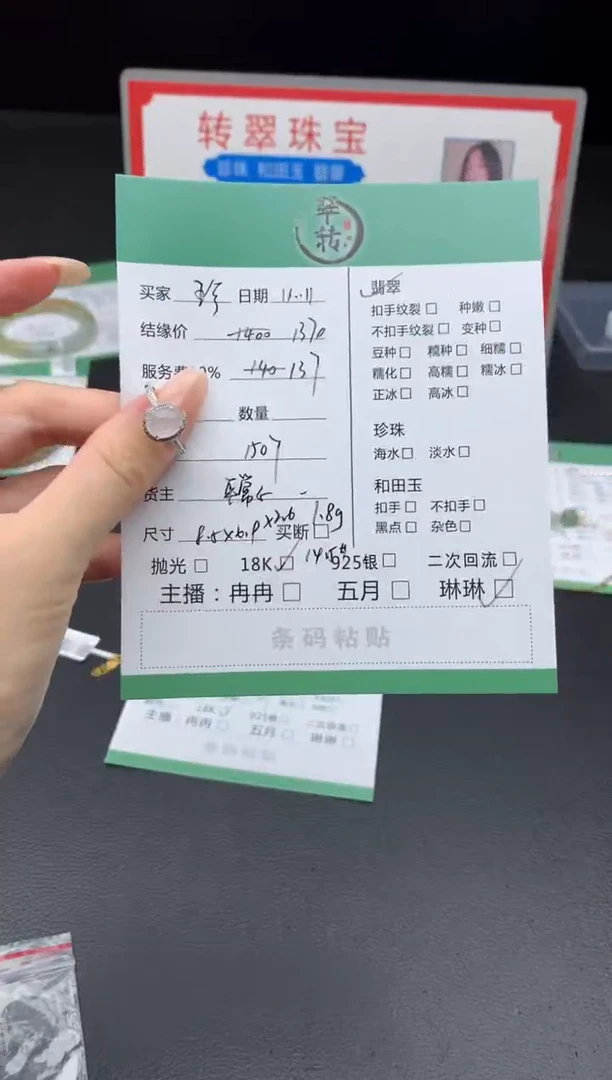 转翠珠宝
珍珠 和田玉 翡翠
翠转
买家 珍 日期 11.11
结缘价 1400 1370
服务费 0% 140 137
数量
1507
货主
尺寸 8.5×6.9×2.6 1.8g 买断
抛光 18K 14.5# 925银 二次回流
主播：冉冉 五月 琳琳
条码粘贴
翡翠
扣手纹裂 种嫩
不扣手纹裂 变种
豆种 糯种 细糯
糯化 高糯 糯冰
正冰 高冰
珍珠
海水 淡水
和田玉
扣手 不扣手
黑点 杂色
18K 925银
主播：冉冉 五月 琳琳
条码粘贴